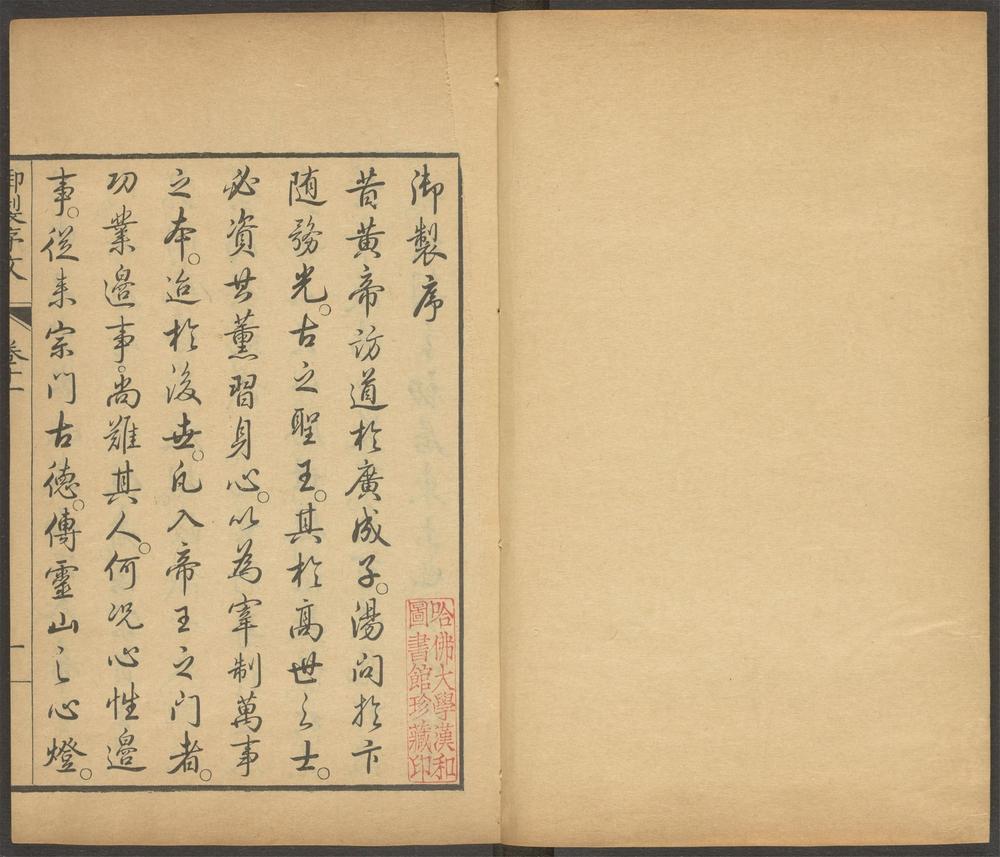 御製序
昔黃帝訪道於廣成子。湯問於卞
随務光。古之聖王。其於高世之士
必資其薰習身心。以為宰制萬事
之本。迨於後世。凡入帝王之门者。
功業邉事。尚難其人。何况心性邉
事。從来宗门古德。傳靈山之心燈。
御製序文 卷十一 一
哈佛大學漢和
圖書館珍藏印